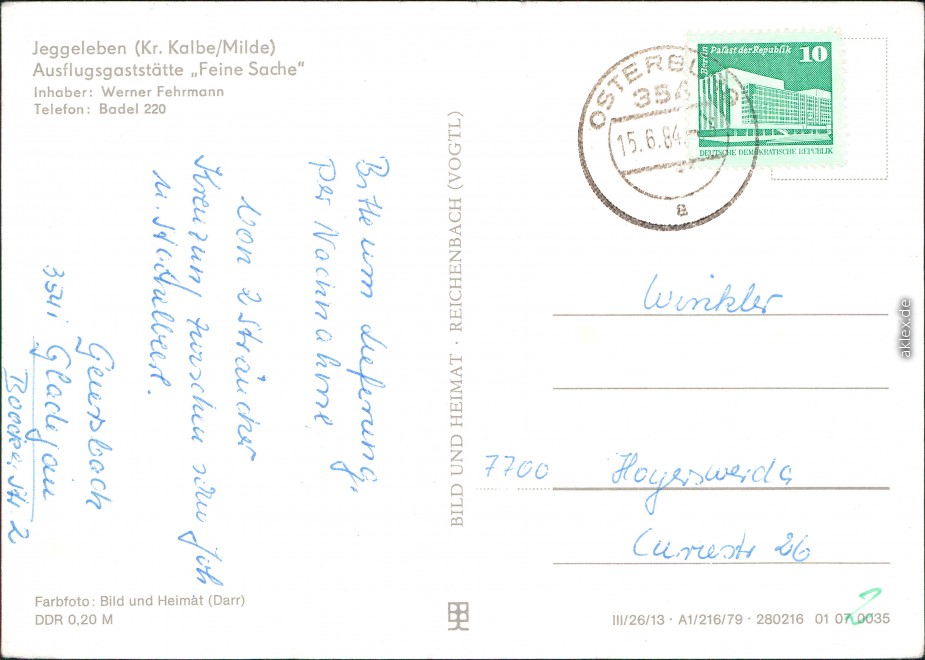 Jeggeleben (Kr. Kalbe/Milde)
Ausflugsgaststätte „Feine Sache“
Inhaber: Werner Fehrmann
Telefon: Badel 220
Bitte um Lieferung,
per Nachnahme,
Von 2 Sträucher
Kreuzung zwischen schw Joh
u. Stachelbeer.
Geiersbach
3541 Gladigau
Boocker Str 2
BILD UND HEIMAT · REICHENBACH (VOGTL)
OSTERBURG
354
15.6.84
a
Berlin Palast der Republik 10
DEUTSCHE DEMOKRATISCHE REPUBLIK
Winkler
7700 Hoyerswerda
Curiestr 26
Farbfoto: Bild und Heimat (Darr)
DDR 0,20 M
III/26/13 · A1/216/79 · 280216 01 07 0035
2
aklex.de